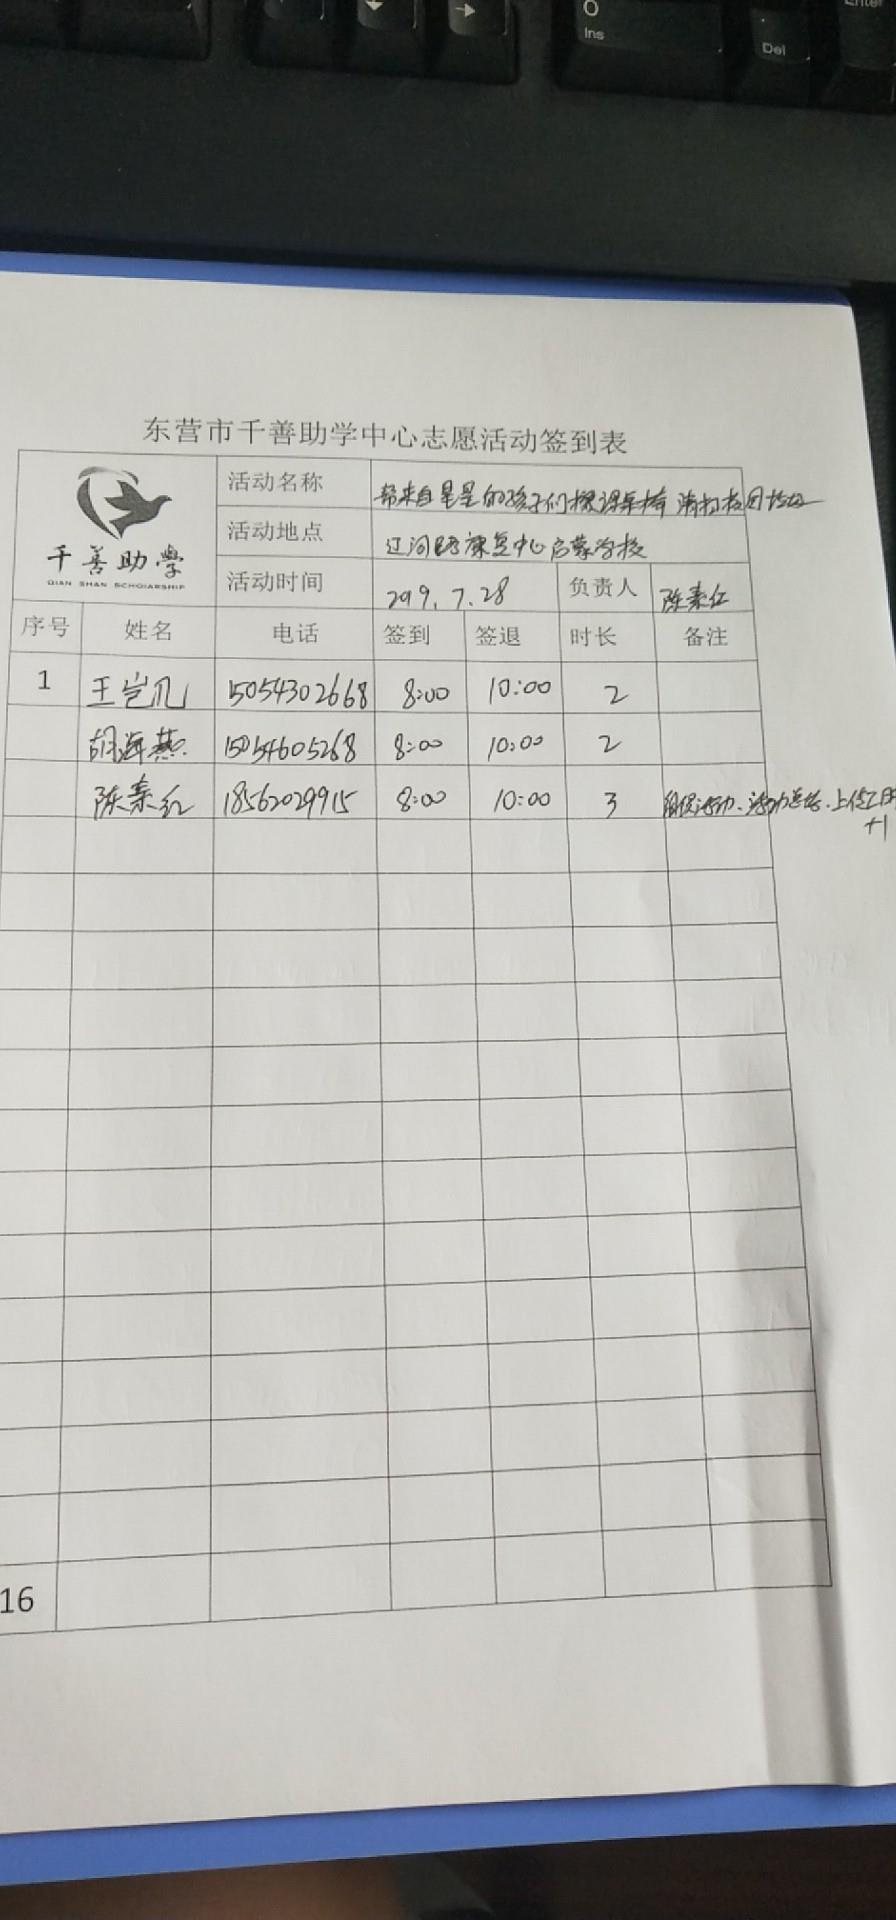 Ins
Del
Enter
东营市千善助学中心志愿活动签到表
千善助學
QIAN SHAN SCHOLARSHIP
活动名称 帮来自星星的孩子们擦课桌椅 清扫校园垃圾
活动地点 辽河路康复中心启蒙学校
活动时间 2019.7.28 负责人 陈素红
序号 姓名 电话 签到 签退 时长 备注
1 王岩凡 15054302668 8:00 10:00 2
胡海燕 15054605268 8:00 10:00 2
陈素红 18562029915 8:00 10:00 3 组织活动、活动总结、上传
+1
16